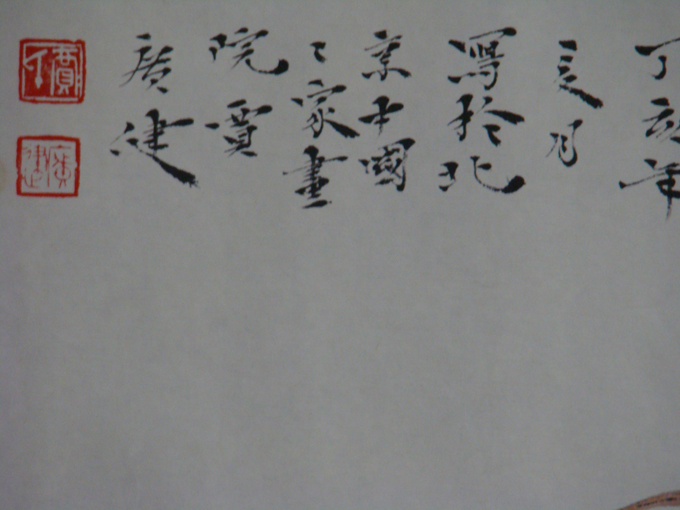 丁亥年
夏月
寫於北
京中國
〻家畫
院賈
廣健
廣健